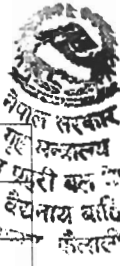 नेपाल सरकार
गृह मन्त्रालय
प्रहरी बल
वैद्यनाथ
कैलाली